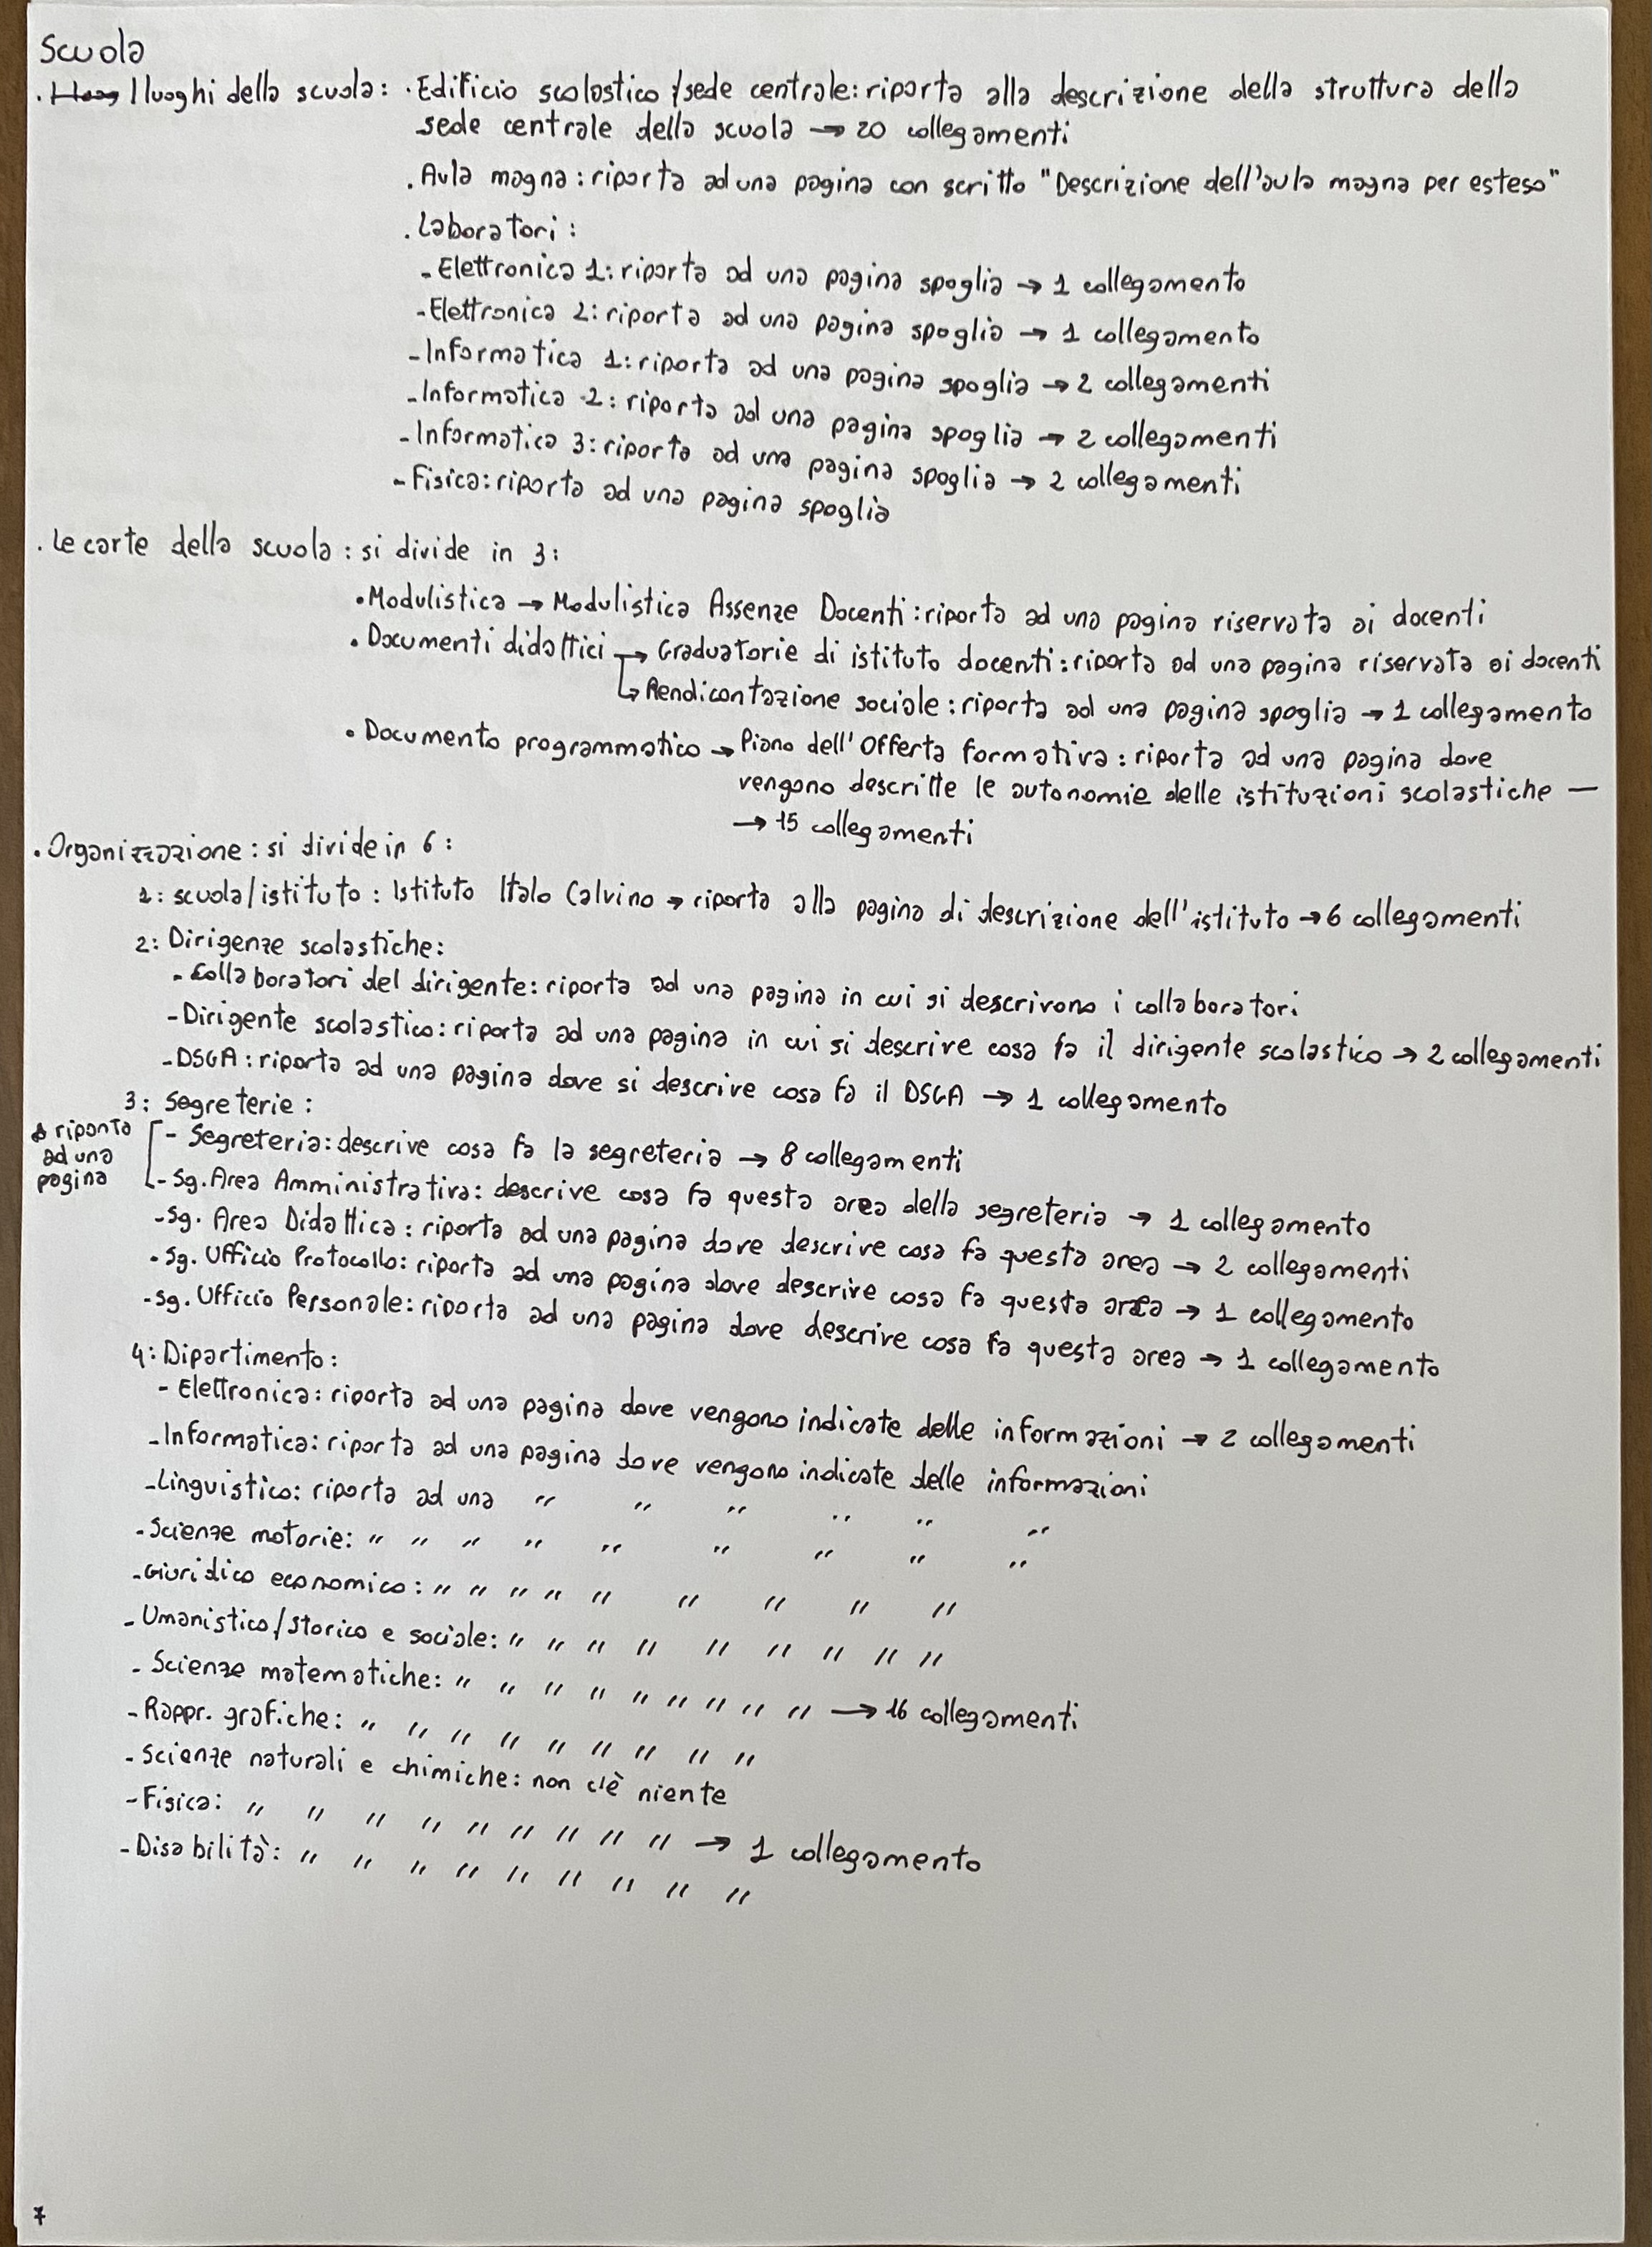 Scuola
. I luoghi della scuola: . Edificio scolastico / sede centrale: riporta alla descrizione della struttura della
sede centrale della scuola → 20 collegamenti
. Aula magna: riporta ad una pagina con scritto "Descrizione dell'aula magna per esteso"
. Laboratori:
- Elettronica 1: riporta ad una pagina spoglia → 1 collegamento
- Elettronica 2: riporta ad una pagina spoglia → 1 collegamento
- Informatica 1: riporta ad una pagina spoglia → 2 collegamenti
- Informatica 2: riporta ad una pagina spoglia → 2 collegamenti
- Informatica 3: riporta ad una pagina spoglia → 2 collegamenti
- Fisica: riporta ad una pagina spoglia
. Le carte della scuola: si divide in 3:
• Modulistica → Modulistica Assenze Docenti: riporta ad una pagina riservata ai docenti
• Documenti didattici → Graduatorie di istituto docenti: riporta ad una pagina riservata ai docenti
↳ Rendicontazione sociale: riporta ad una pagina spoglia → 1 collegamento
• Documento programmatico → Piano dell'Offerta formativa: riporta ad una pagina dove
vengono descritte le autonomie delle istituzioni scolastiche —
→ 15 collegamenti
. Organizzazione: si divide in 6:
1: scuola/istituto: Istituto Italo Calvino → riporta alla pagina di descrizione dell'istituto → 6 collegamenti
2: Dirigenze scolastiche:
- Collaboratori del dirigente: riporta ad una pagina in cui si descrivono i collaboratori
- Dirigente scolastico: riporta ad una pagina in cui si descrive cosa fa il dirigente scolastico → 2 collegamenti
- DSGA: riporta ad una pagina dove si descrive cosa fa il DSGA → 1 collegamento
3: Segreterie:
riporta
ad una
pagina
- Segreteria: descrive cosa fa la segreteria → 8 collegamenti
- Sg. Area Amministrativa: descrive cosa fa questa area della segreteria → 1 collegamento
- Sg. Area Didattica: riporta ad una pagina dove descrive cosa fa questa area → 2 collegamenti
• Sg. Ufficio Protocollo: riporta ad una pagina dove descrive cosa fa questa area → 1 collegamento
- Sg. Ufficio Personale: riporta ad una pagina dove descrive cosa fa questa area → 1 collegamento
4: Dipartimento:
- Elettronica: riporta ad una pagina dove vengono indicate delle informazioni → 2 collegamenti
- Informatica: riporta ad una pagina dove vengono indicate delle informazioni
- Linguistico: riporta ad una " " " " " "
- Scienze motorie: " " " " " " " " "
- Giuridico economico: " " " " " " " " "
- Umanistico/storico e sociale: " " " " " " " " "
- Scienze matematiche: " " " " " " " " " → 16 collegamenti
- Rappr. grafiche: " " " " " " " " "
- Scienze naturali e chimiche: non c'è niente
- Fisica: " " " " " " " " " → 1 collegamento
- Disabilità: " " " " " " " " "
7